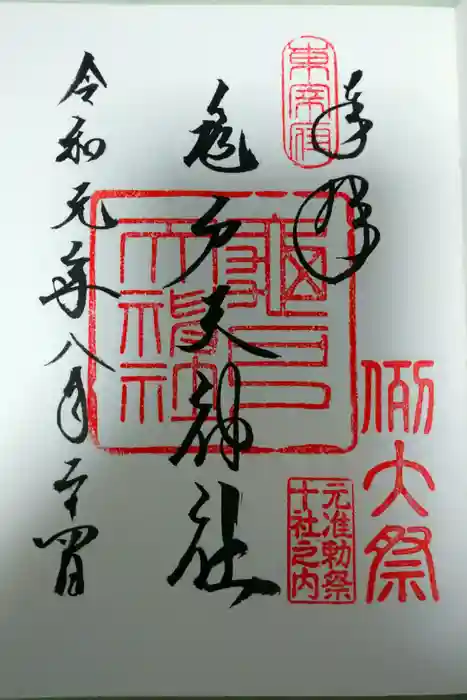 奉拝
東宰府
例大祭
元准勅祭
十社之内
亀戸天神社
亀戸
天神社
令和元年八月二十四日